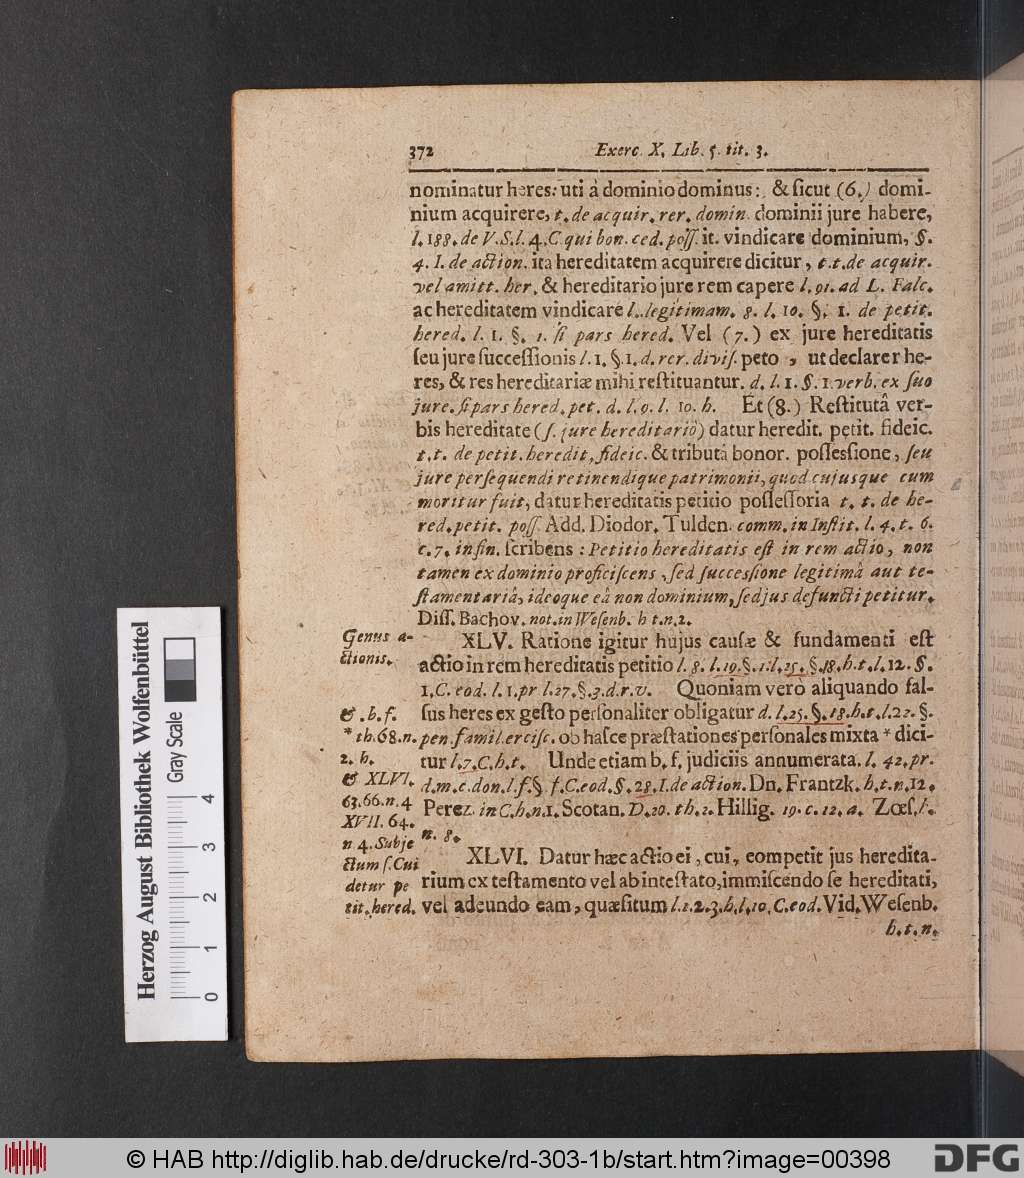 372 Exerc. X. Lib. 5. tit. 3.
nominatur heres: uti à dominio dominus: & ſicut (6.) domi-
nium acquirere, t. de acquir. rer. domin. dominii jure habere,
l. 188. de V.S. l. 4. C. qui bon. ced. poſſ. it. vindicare dominium, §.
4. I. de action. ita hereditatem acquirere dicitur, t.t. de acquir.
vel amitt. her. & hereditario jure rem capere l. 91. ad L. Falc.
ac hereditatem vindicare l. legitimam. 8. l. 10. §. 1. de petit.
hered. l. 1. §. 1. ſi pars hered. Vel (7.) ex jure hereditatis
ſeu jure ſucceſſionis l. 1. §. 1. d. rer. diviſ. peto, ut declarer he-
res, & res hereditariæ mihi reſtituantur. d. l. 1. §. 1. verb. ex ſuo
jure. ſi pars hered. pet. d. l. 9. l. 10. h. Et (8.) Reſtitutâ ver-
bis hereditate (ſ. jure hereditariò) datur heredit. petit. fideic.
t.t. de petit. heredit. fideic. & tributâ bonor. poſſeſſione, ſeu
jure perſequendi retinendique patrimonii, quod cujusque cum
moritur fuit, datur hereditatis petitio poſſeſſoria t. t. de he-
red. petit. poſſ. Add. Diodor. Tulden. comm. in Inſtit. l. 4. t. 6.
c. 7. in fin. ſcribens: Petitio hereditatis eſt in rem actio, non
tamen ex dominio proficiſcens, ſed ſucceſſione legitimâ aut te-
ſtamentariâ, ideoque eâ non dominium, ſed jus defuncti petitur.
Diſſ. Bachov. not. in Weſenb. h t. n. 2.
Genus a-
ctionis.
XLV. Ratione igitur hujus cauſæ & fundamenti eſt
actio in rem hereditatis petitio l. 8. l. 19. §. 1. l. 25. §. 18. h. t. l. 12. §.
1. C. eod. l. 1. pr l. 27. §. 3. d. r. v. Quoniam verò aliquando fal-
ſus heres ex geſto perſonaliter obligatur d. l. 25. §. 18. h. t. l. 22. §.
pen. famil. erciſc. ob haſce præſtationes perſonales mixta * dici-
tur l. 7. C. h. t. Unde etiam b. f. judiciis annumerata. l. 42. pr.
d. m. c. don. l. f. §. f. C. eod. §. 28. I. de action. Dn. Frantzk. h. t. n. 12.
Perez. in C. h. n. 1. Scotan. D. 20. th. 2. Hillig. 19. c. 12. a. Zœſ. h.
n. 8.
& . b. f.
* th. 68. n.
2. h.
& XLVI.
63. 66. n. 4
XVII. 64.
n 4. Subje
ctum ſ. Cui
detur pe
tit. hered.
XLVI. Datur hæc actio ei, cui, competit jus heredita-
rium ex teſtamento vel ab inteſtato, immiſcendo ſe hereditati,
vel adeundo eam, quæſitum l. 1. 2. 3. h. l. 10. C. eod. Vid. Weſenb.
h. t. n.
Herzog August Bibliothek Wolfenbüttel
Gray Scale
0 1 2 3 4
© HAB http://diglib.hab.de/drucke/rd-303-1b/start.htm?image=00398
DFG